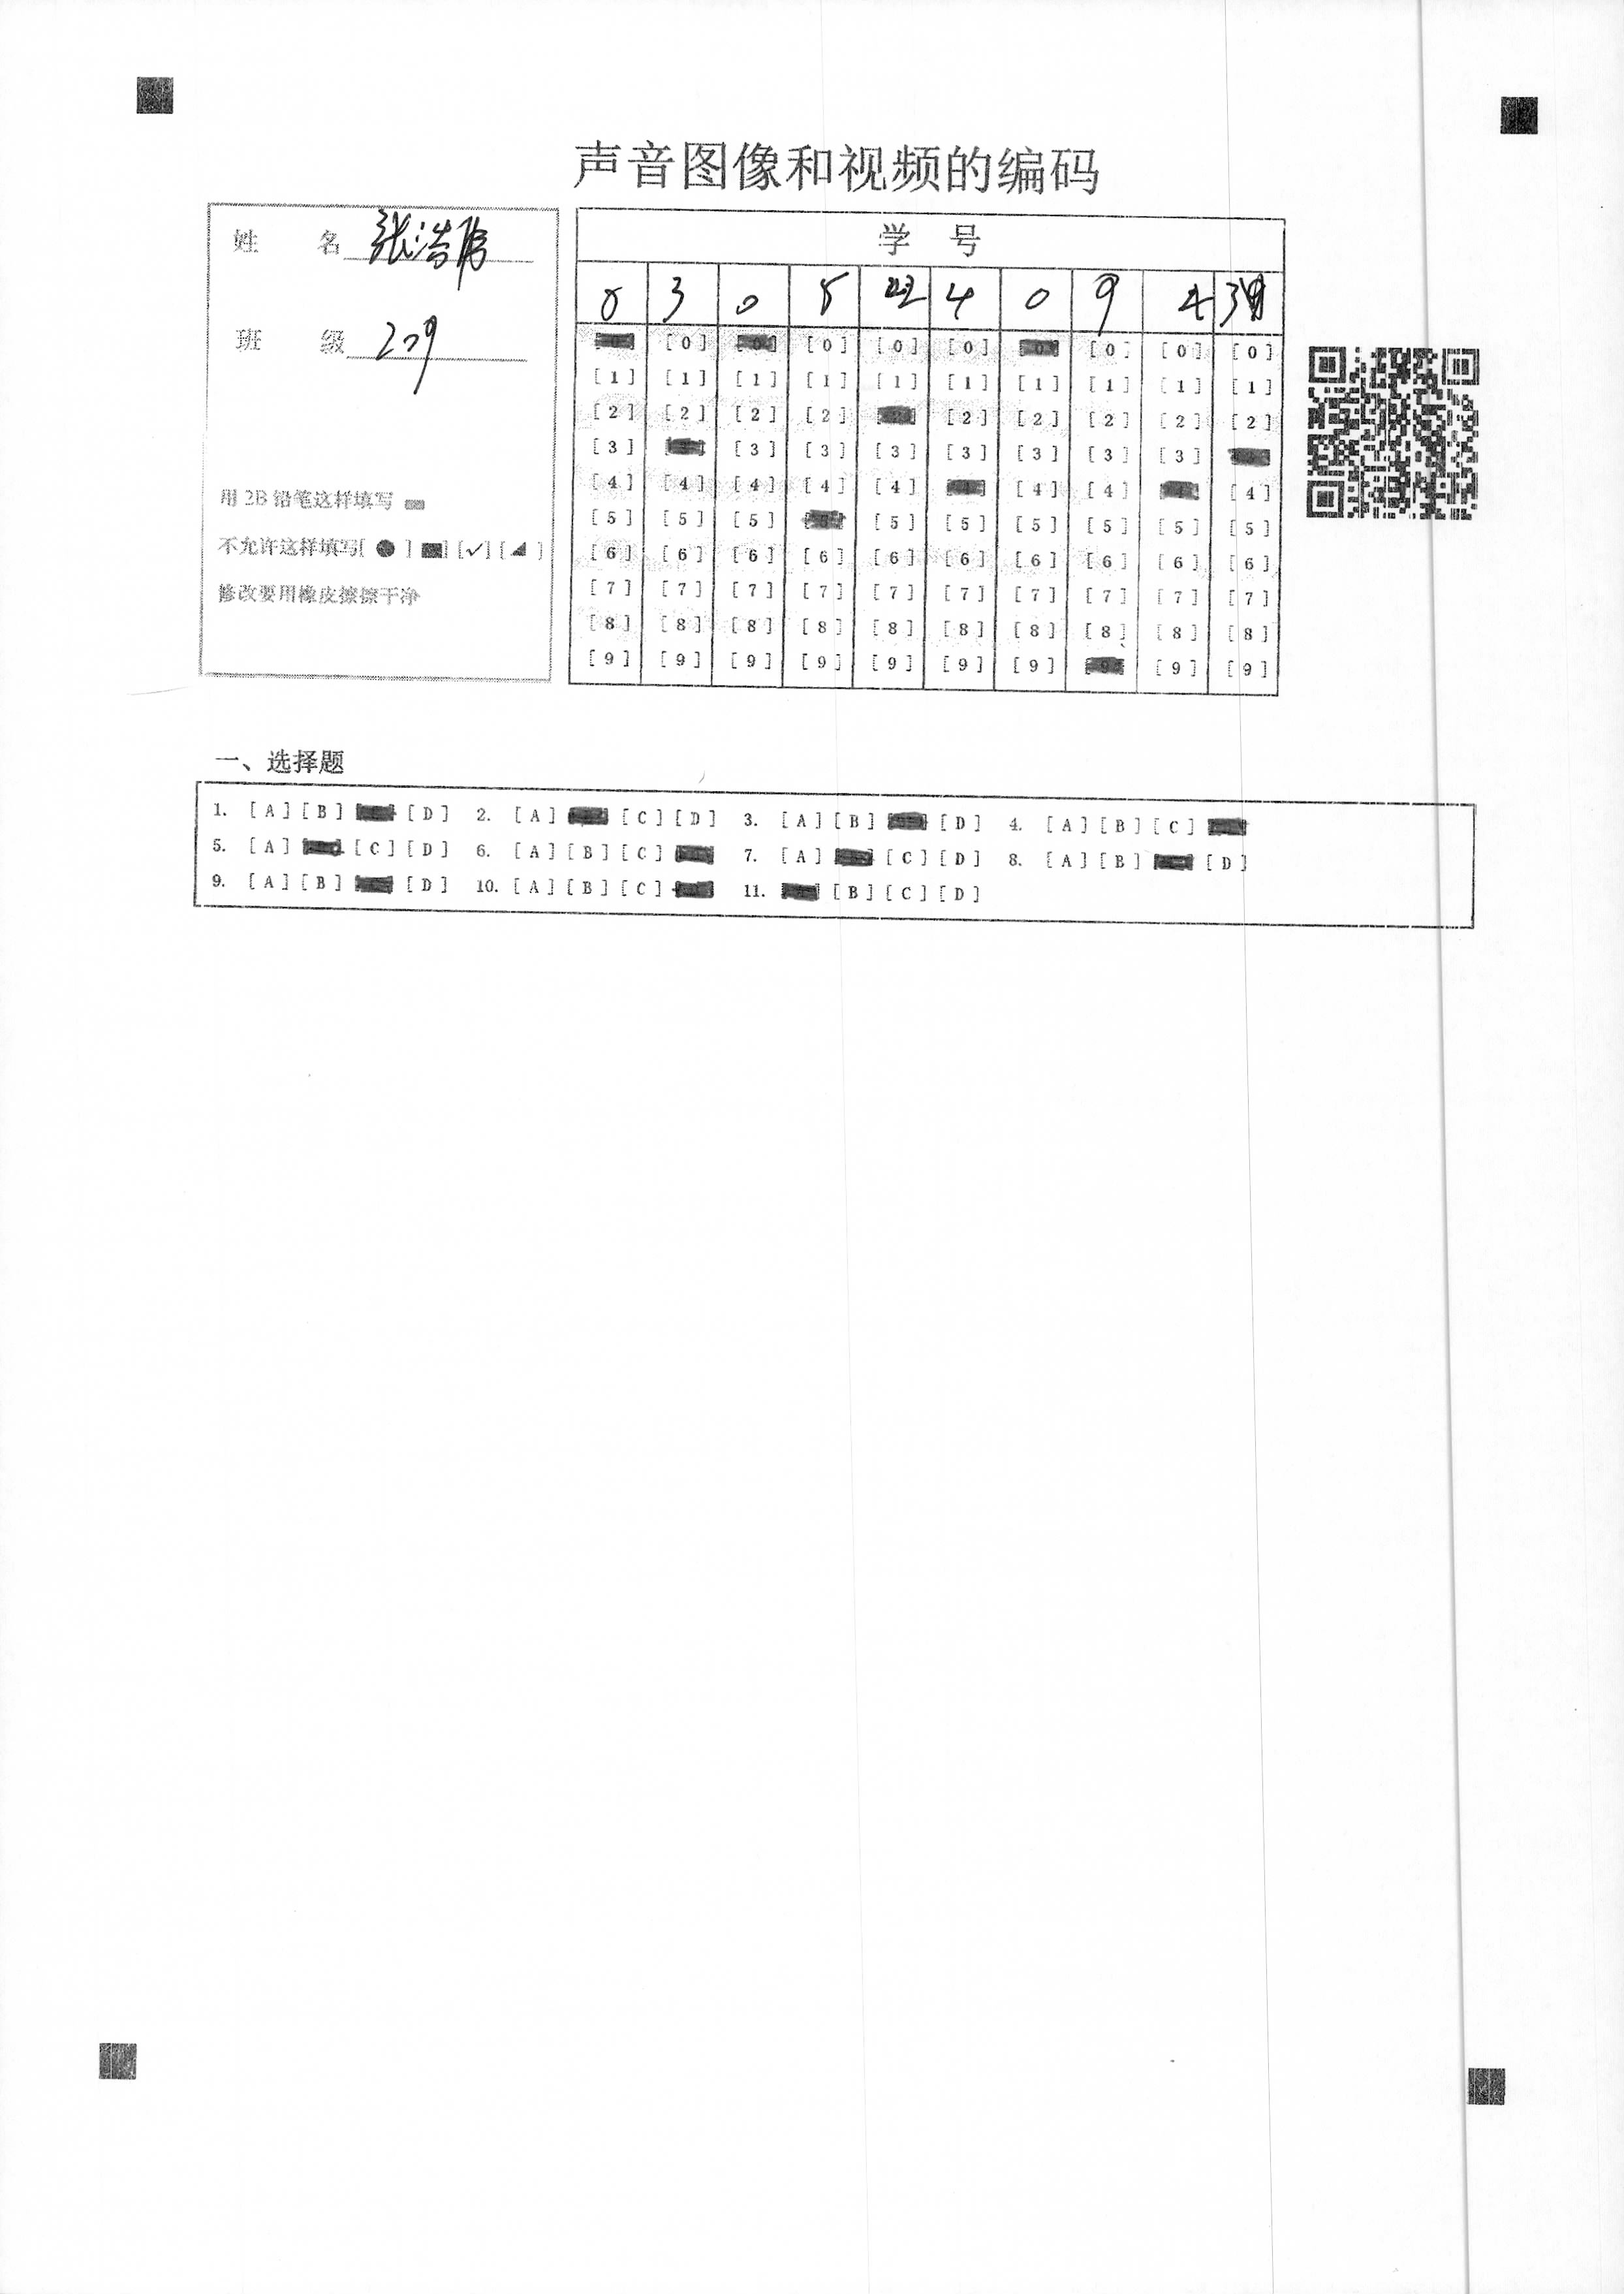 声音图像和视频的编码
姓 名 张浩
班 级 209
用 2B 铅笔这样填写
不允许这样填写[ ● ] ■] [✓] [◢ ]
修改要用橡皮擦擦干净
学 号
0 3 0 5 2 4 0 9 4 3
[0] [0] [0] [0] [0] [0] [0] [0]
[1] [1] [1] [1] [1] [1] [1] [1] [1] [1]
[2] [2] [2] [2] [2] [2] [2] [2] [2]
[3] [3] [3] [3] [3] [3] [3] [3]
[4] [4] [4] [4] [4] [4] [4] [4]
[5] [5] [5] [5] [5] [5] [5] [5] [5]
[6] [6] [6] [6] [6] [6] [6] [6] [6] [6]
[7] [7] [7] [7] [7] [7] [7] [7] [7] [7]
[8] [8] [8] [8] [8] [8] [8] [8] [8] [8]
[9] [9] [9] [9] [9] [9] [9] [9] [9]
一、选择题
1. [A] [B] [D] 2. [A] [C] [D] 3. [A] [B] [D] 4. [A] [B] [C]
5. [A] [C] [D] 6. [A] [B] [C] 7. [A] [C] [D] 8. [A] [B] [D]
9. [A] [B] [D] 10. [A] [B] [C] 11. [B] [C] [D]